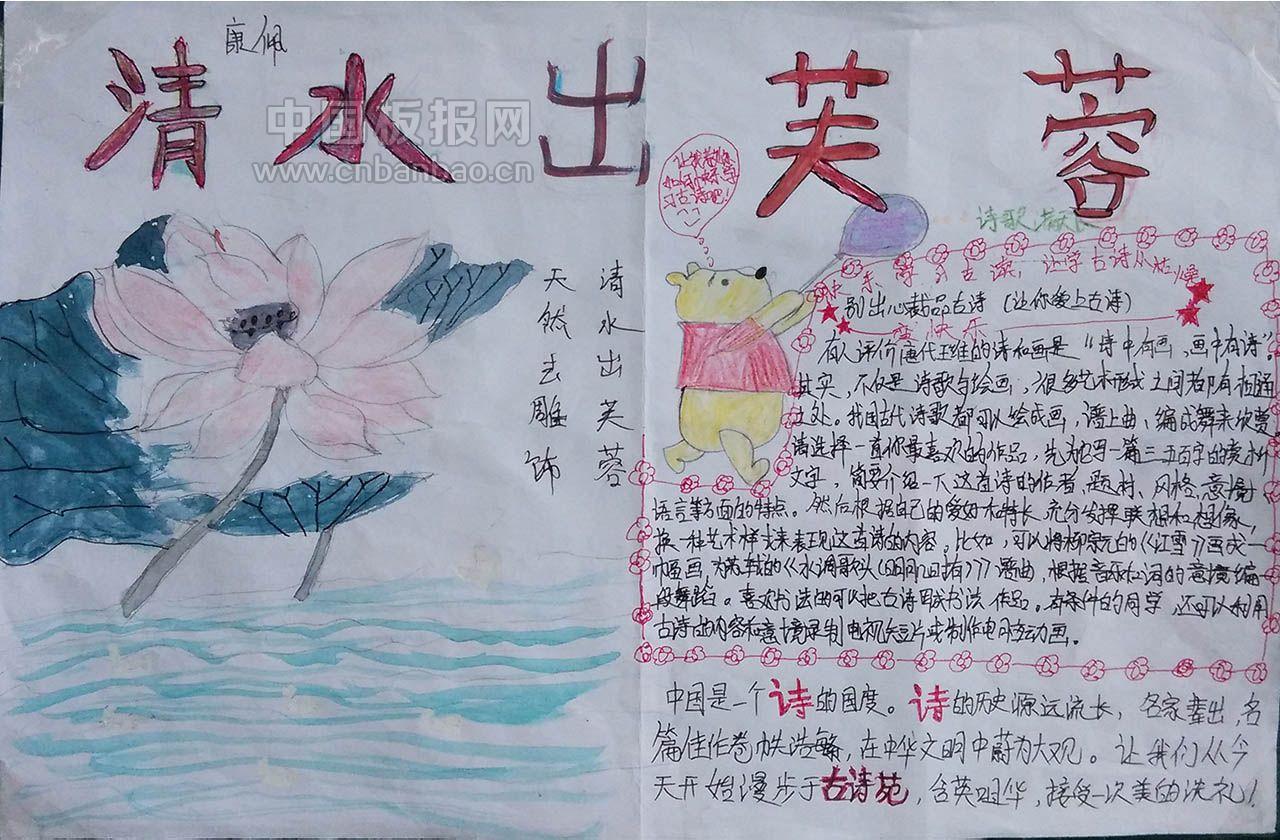 康佩
清水出芙蓉
中国板报网
www.cnbanbao.cn
清水出芙蓉
天然去雕饰
习古诗吧!
诗歌
别出心裁品古诗(让你爱上古诗)
变快乐
有人评价唐代王维的诗和画是“诗中有画,画中有诗”,
其实,不仅是诗歌与绘画,很多艺术形式之间都有相通
之处。我国古代诗歌都可以绘成画,谱上曲、编成舞来欣赏
请选择一首你最喜欢的作品,先为它写一篇三五百字的赏析
文字,简要介绍一下这首诗的作者、题材、风格、意境、
语言等方面的特点。然后根据自己的爱好和特长,充分发挥联想和想象,
换一种艺术样式来表现这首诗的内容。比如,可以将柳宗元的《江雪》画成一
幅画,为苏轼的《水调歌头(明月几时有)》谱曲,根据音乐和词的意境编
段舞蹈。喜欢书法的可以把古诗写成书法作品。有条件的同学,还可以利用
古诗的内容和意境录制电视短片或制作电脑动画。
中国是一个诗的国度。诗的历史源远流长,名家辈出,名
篇佳作卷帙浩繁,在中华文明中蔚为大观。让我们从今
天开始漫步于古诗苑,含英咀华,接受一次美的洗礼!